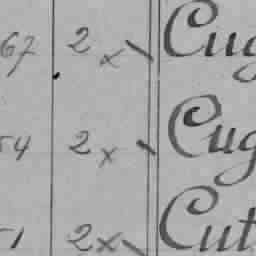 67 2 x Cug
54 2 x Cug
51 2 x Cut